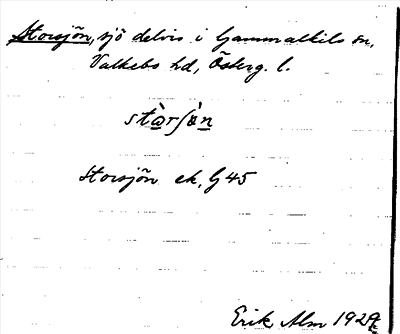 Storsjön, sjö delvis i Gammalkils sn,
Valkebo hd, Österg. l.
Storsjön ek, G 45
Erik Alm 1929